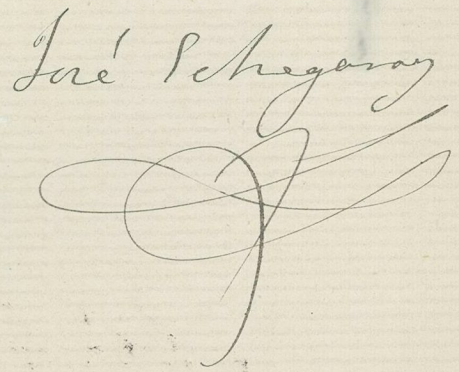 José Echegaray